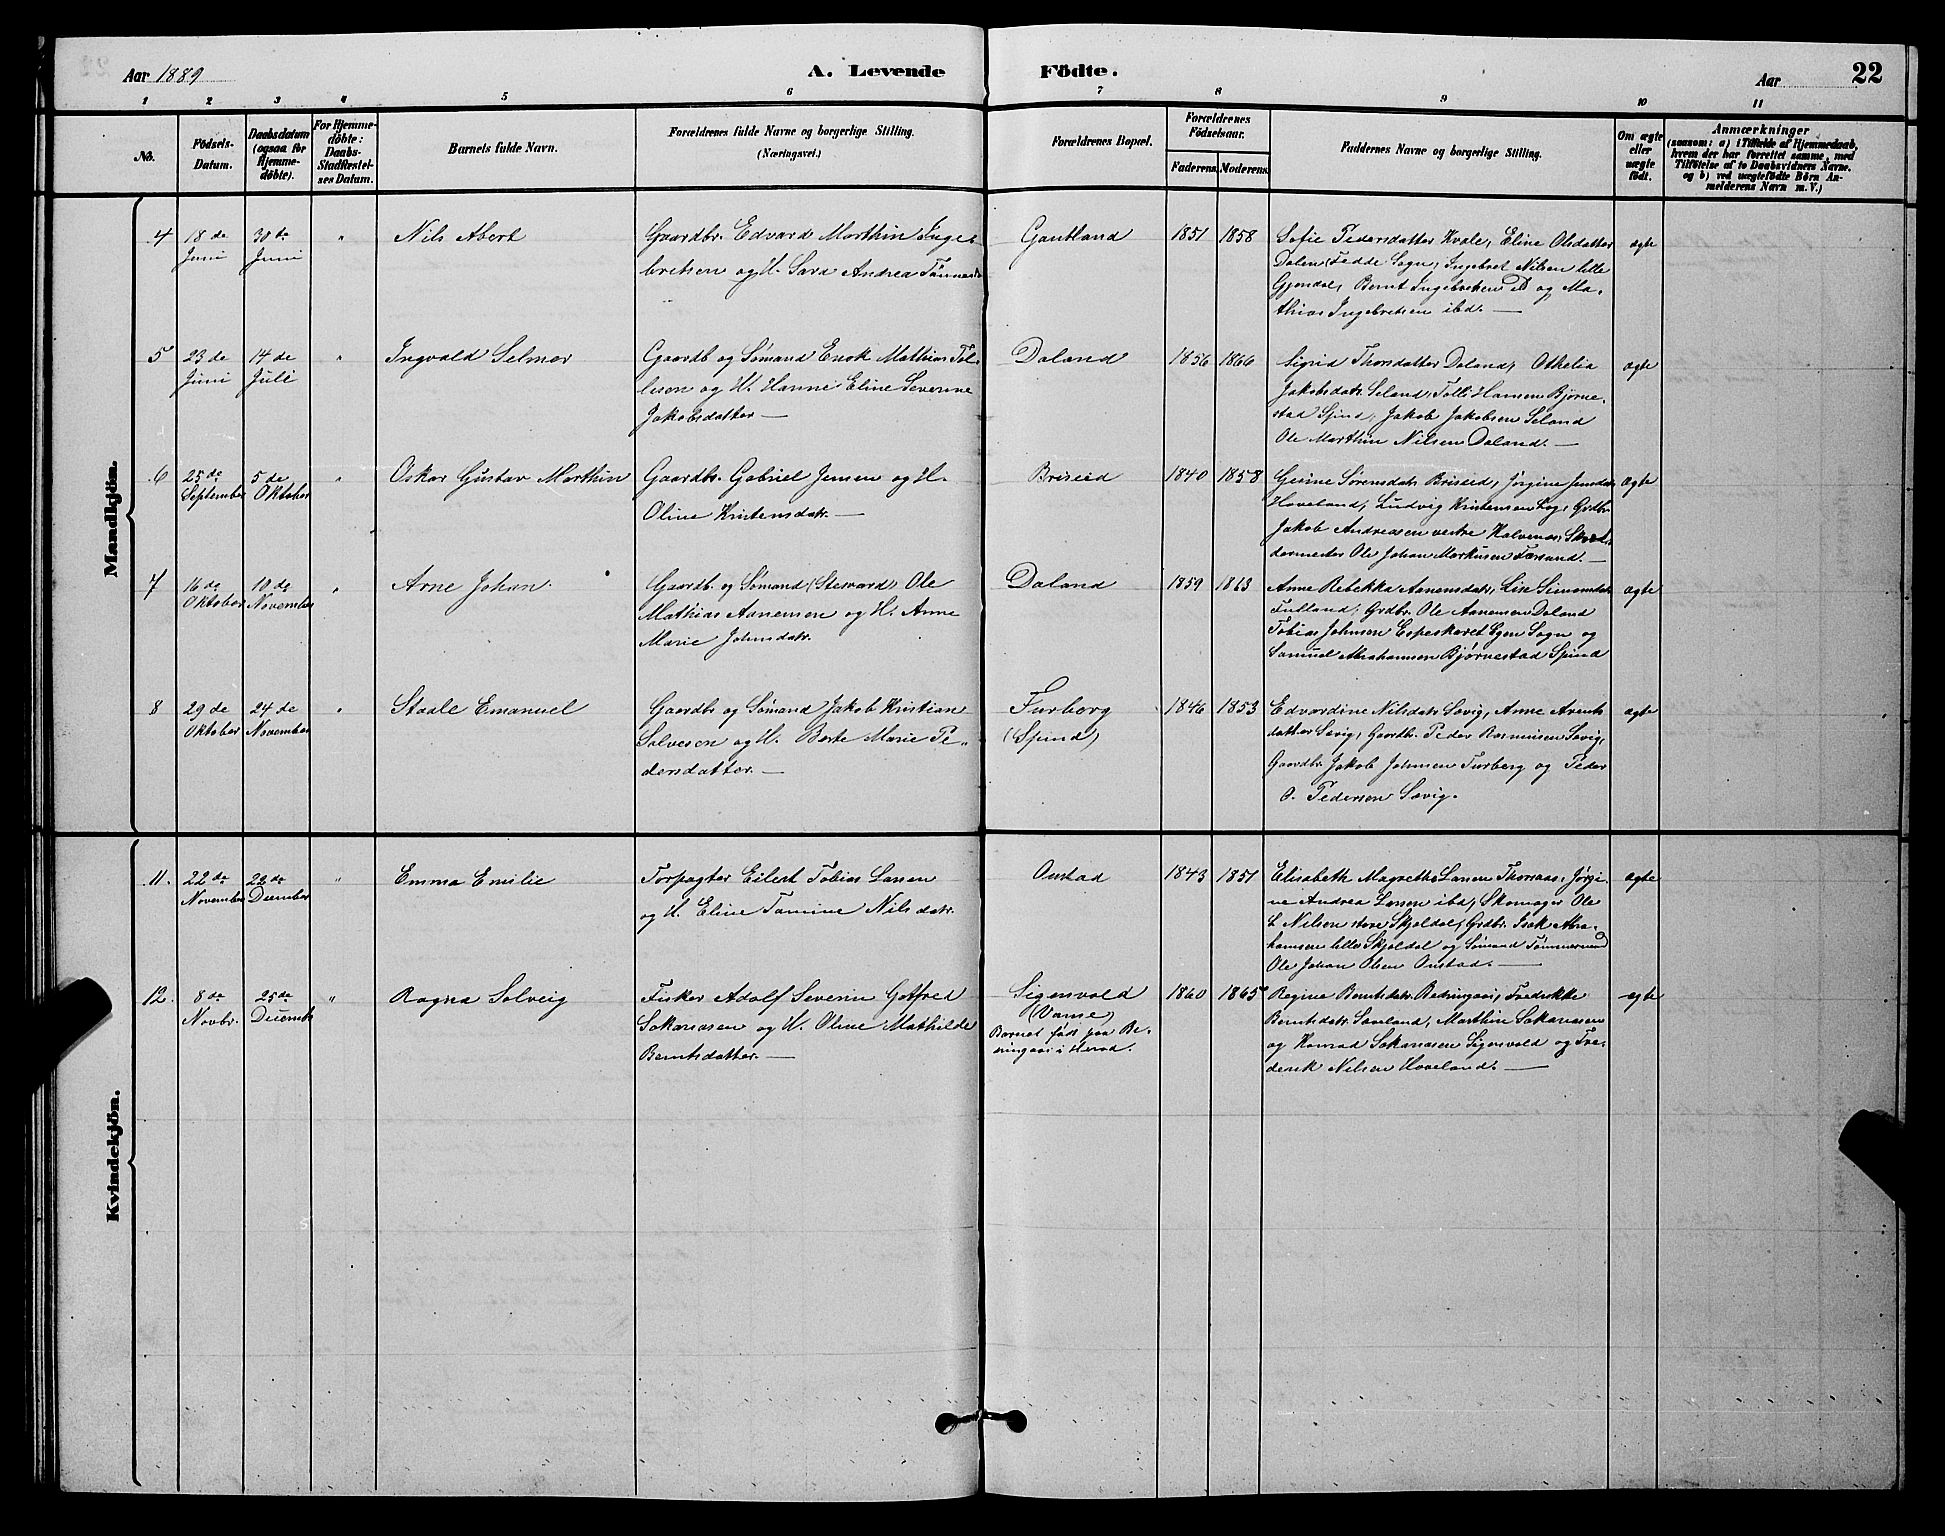 Aar 1889
A. Levende
Födte.
Aar
22
1 2 3 4 5 6 7 8 9 10 11
No.
Födsels-
Datum.
Daabsdatum
(ogsaa for
Hjemme-
döbte).
For Hjemme-
döbte:
Daabs-
Stadfæstel-
ses Datum.
Barnets fulde Navn.
Forældrenes fulde Navne og borgerlige Stilling.
(Næringsvei.)
Forældrenes Bopæl.
Forældrenes
Födselsaar.
Faderens. Moderens.
Faddernes Navne og borgerlige Stilling.
Om ægte
eller
uægte
födt.
Anmærkninger
(saasom: a) i Tilfælde af Hjemmedaab,
hvem der har forrettet samme, med
Tilföielse af to Daabsvidners Navne.
og b) ved uægtefödte Börn An-
melderens Navn m. V.)
Mandkjön.
4
18 de
Juni
30 te
Juni
"
Nils Abert
Gaardbr. Edvard Marthin Inge-
bretsen og H. Sara Andrea Tönnes
Gautland
1851
1858
Sofie Pedersdatter Kvale, Eline Olsdatter
Dalen (Fedde Sogn, Ingebret Nilsen lille
Gjendal, Bernt Ingebretsen ibd og Ma-
thias Ingebretsen ibd. —
ægte
5
23 de
Juni
14 de
Juli
"
Ingvald Selmer
Gaardb og Sømand Enok Mathias Tol-
lisen og H. Hanne Eline Severine
Jakobsdatter —
Daland
1856
1866
Sigrid Thorsdatter Daland, Othelia
Jakobsdatr. Seland, Tolli Hansen Bjørne-
stad Spind, Jakob Jakobsen Seland
Ole Marthin Nilsen Daland. —
ægte
6
25 de
September
5 de
Oktober
"
Oskar Gustav Marthin
Gaardbr. Gabriel Jensen og H.
Oline Kristensdatr. —
Briseid
1840
1858
Gurine Sørensdatr. Briseid, Jørgine Jensdatr
Haveland, Ludvig Kristensen Log, Grdbr.
Jakob Andreasen vestre Halvenes, Skræd-
dermester Ole Johan Markusen Farsund. —
ægte
7
16 de
Oktober
10 de
November
"
Arne Johan
Gaardb. og Sømand (Steward) Ole
Mathias Aanensen og H. Anne
Marie Johnsdatr.
Daland
1859
1863
Anne Rebekka Aanensdatr., Lise Simonsdatr.
Futland, Grdbr. Ole Aanensen Daland
Tobias Johnsen Espeskaret Egen Sogn og
Samuel Abrahamsen Bjørnestad Spind
ægte
8
29 de
Oktober
24 de
November
"
Staale Emanuel
Gaardbr og Sømand Jakob Kristian
Salvesen og H. Berte Marie Pe-
dersdatter. —
Furborg
(Spind)
1846
1853
Edvardine Nilsdatr. Sævig, Anne Arents
datter Sævig, Gaardb. Peder Rasmusen Sævig,
Gaardbr Jakob Johnsen Furberg og Peder
O. Pedersen Sævig.
ægte
Kvindekjön.
11.
22 de
November
22 de
December
"
Emma Emilie
Forpagter Eilert Tobias Larsen
og H. Eline Tomine Nilsdatr.
Onstad
1843
1851
Elisabeth Magrethe Larsen Thorsaas, Jørgi-
ne Andrea Larsen ibd, Skomager Ole
L Nilsen store Skjoldal, Grdbr. Isak Abra-
hamsen lille Skjoldal og Sømand Tømmermand
Ole Johan Olsen Onstad. —
ægte
12.
8 de
Novbr.
25 de
Decembr
"
Ragna Solveig
Fisker Adolf Severin Gotfred
Sakariasen og H. Oline Mathilde
Berntsdatter. —
Sigersvold
(Vanse)
Barnet født paa Be-
ringaas i Herad.
1860
1865
Regine Berntsdatr. Bedringaas, Fredrikke
Berntsdatr. Saveland, Marthin Sakariasen
og Konrad Sakariasen Sigersvold og Fre-
derik Nilsen Haveland. —
ægte